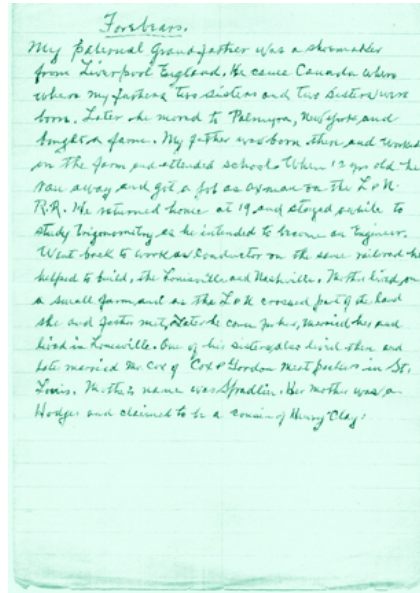 Forebears.
My paternal Grandfather was a shoemaker
from Liverpool England. He came Canada where
where my father, two sisters and two sisters were
born. Later he moved to Palmyra, New York, and
bought a farm. My father was born there and worked
on the farm and attended school. When 12 yrs old he
ran away and got a job as axman on the L & N
R.R. He returned home at 19 and stayed awhile to
study trigonometry as he intended to become an Engineer.
Went back to work as conductor on the same railroad he
helped to build, the Louisville and Nashville. Mother lived on
a small farm, and as the L & N crossed part of the land
she and father met, Later he came for her, married her and
lived in Louisville. One of his sisters, also lived there and
late married Mr. Cox of Cox & Gordon Meat packers in St.
Louis. Mother's name was Spradlin. Her mother was a
Hodges and claimed to be a cousin of Henry Clay.